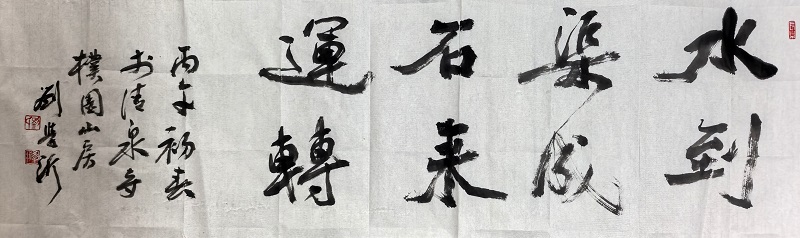 水到
渠成
石来
運轉
丙午初春
於清泉寺
樸園山房
劉